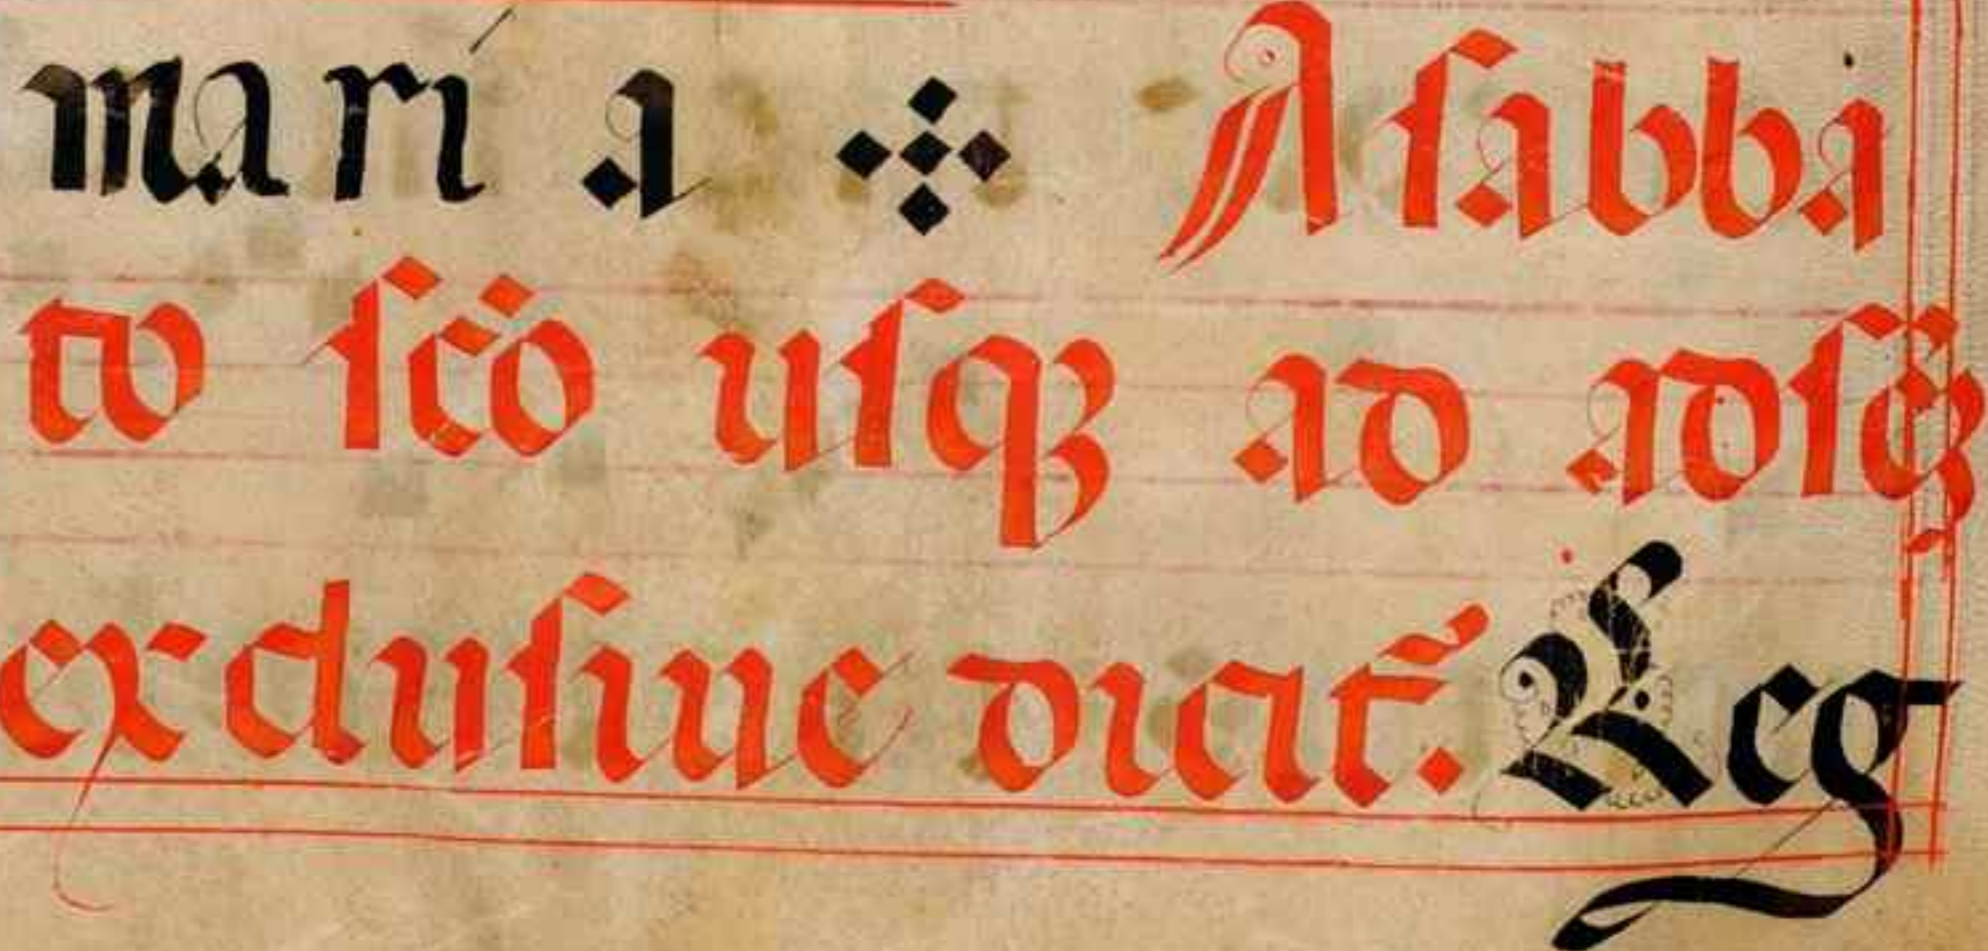 marí a A ſabba
to ſcō uſqꝫ ad adſcē
excluſiue dicit̄. Reg